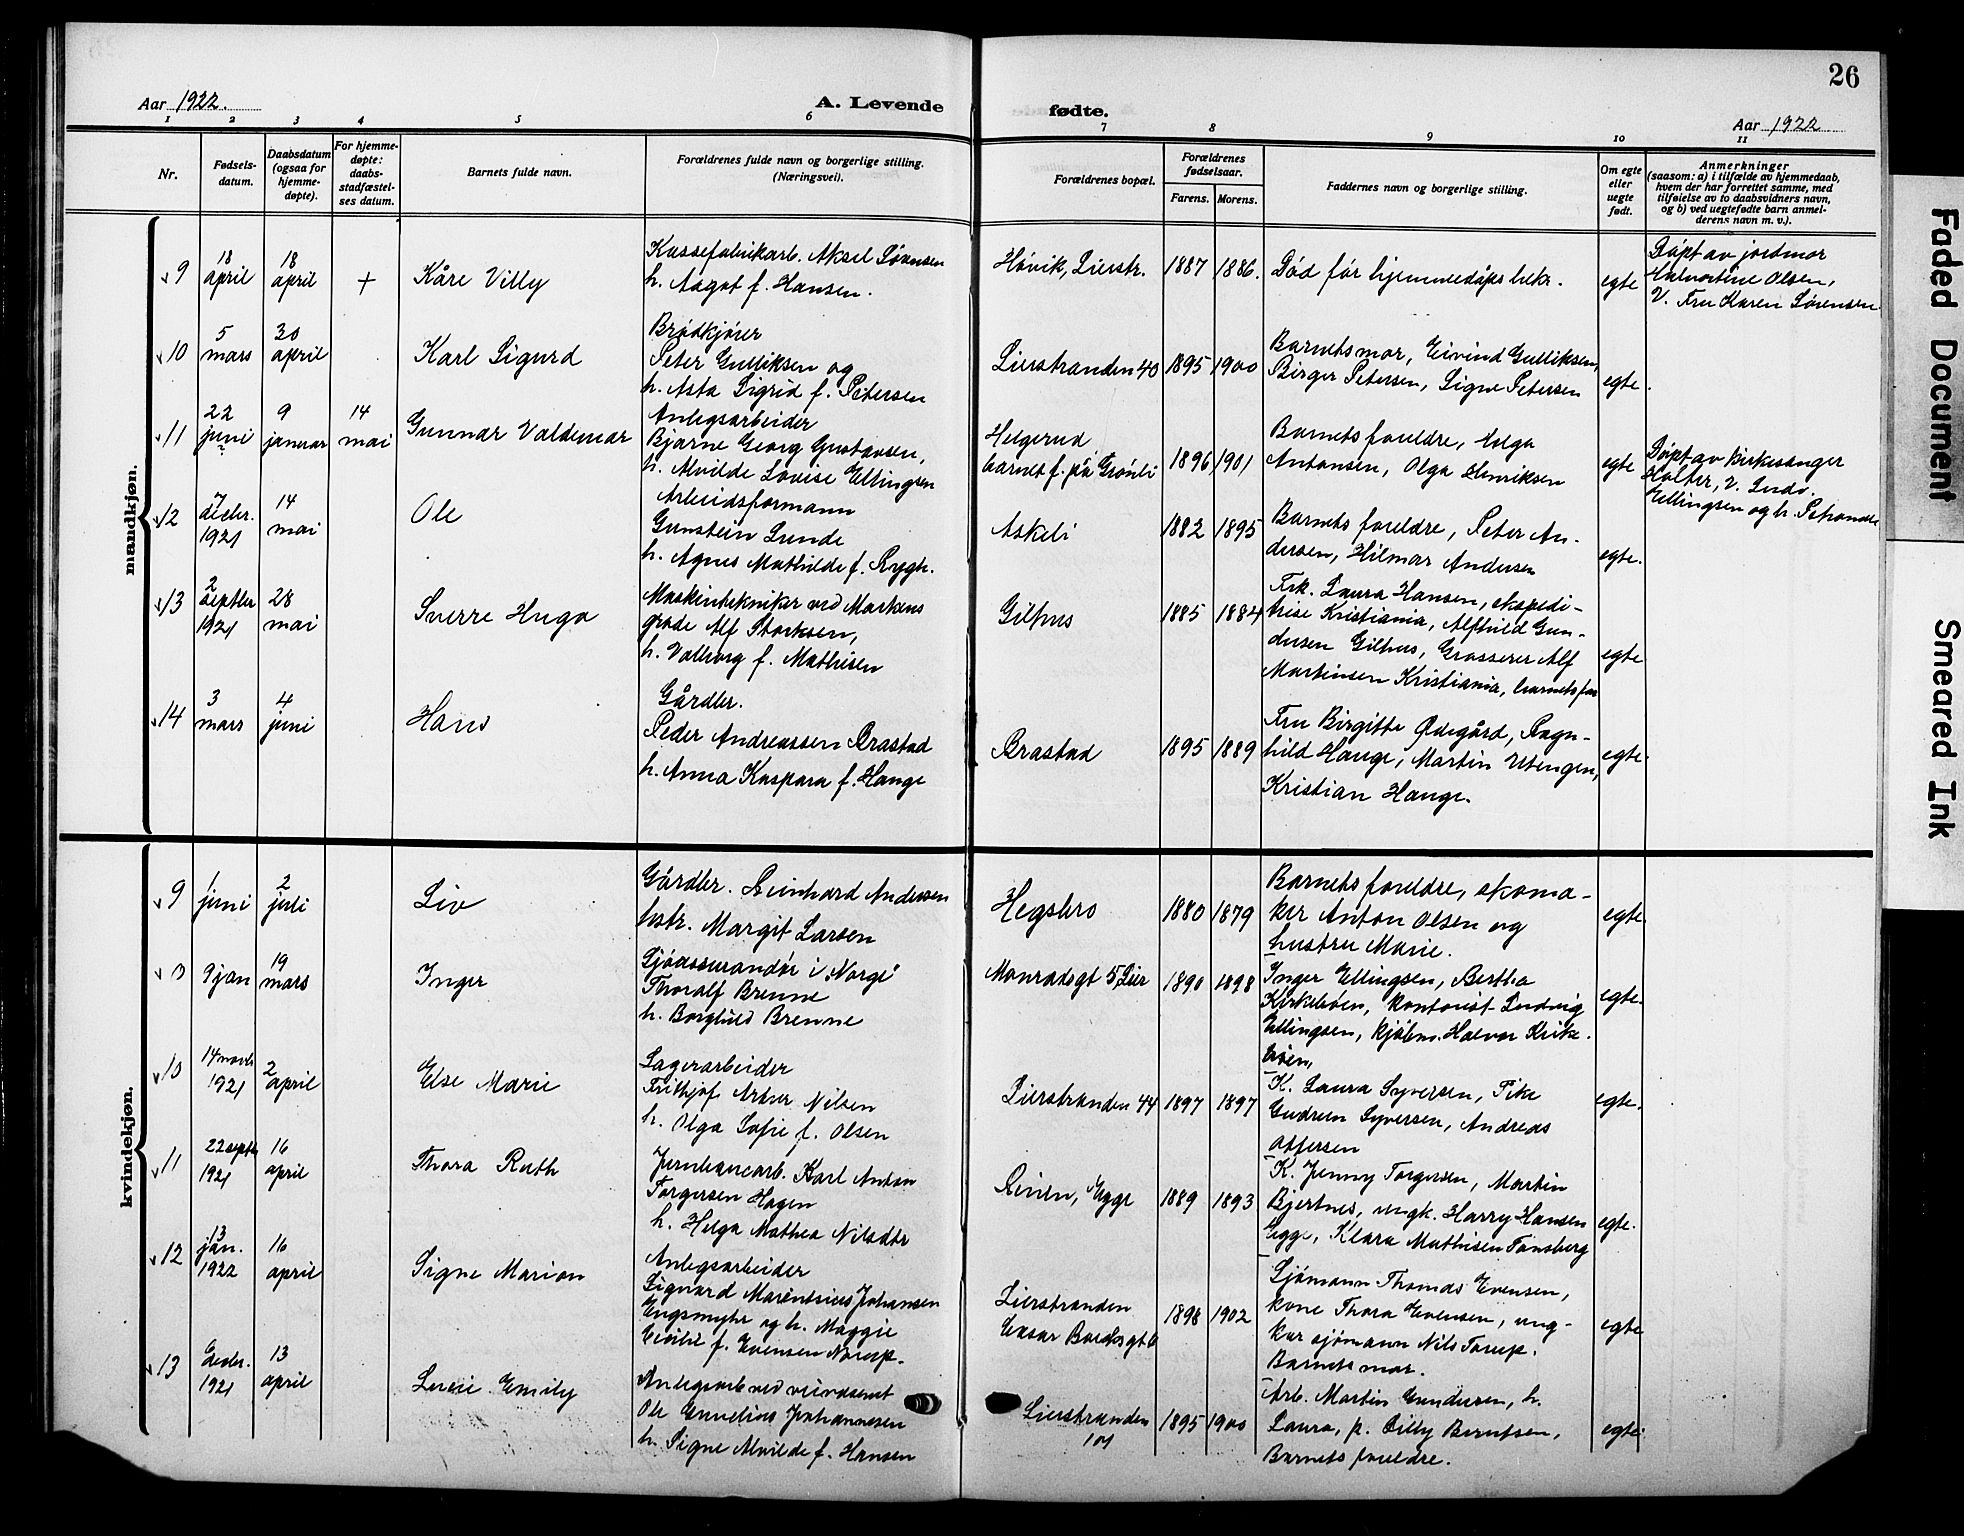 26
Aar 1922.
A. Levende
fødte.
Aar 1922
1 2 3 4 5 6 7 8 9 10 11
Nr.
Fødsels-
datum.
Daabsdatum
(ogsaa for
hjemme-
døpte).
For hjemme-
døpte:
daabs-
stadfæstel-
ses datum.
Barnets fulde navn.
Forældrenes fulde navn og borgerlige stilling.
(Næringsvei).
Forældrenes bopæl.
Forældrenes
fødselsaar.
Farens. Morens.
Faddernes navn og borgerlige stilling.
Om egte
eller
uegte
født.
Anmerkninger
(saasom: a) i tilfælde av hjemmedaab,
hvem der har forrettet samme, med
tilføielse av to daabsvidners navn,
og b) ved uegtefødte barn anmel-
derens navn m. v.).
mandkjøn.
9
18
april
18
april
+
Kåre Villy
Kassefabrikarb. Aksel Sørensen
h. Aagot f. Hansen.
Høvik, Lierstr.
1887 1886.
Død før hjemmedåps bekr.
egte
Døpt av jordmor
Halvardine Olsen,
V. Fru Karen Sørensen
10
5
mars
30
april
Karl Sigurd
Brødkjører
Peter Gulliksen og
h. Asta Sigrid f. Petersen
Lierstranden 40
1895 1900
Barnets mor, Eivind Gulliksen,
Birger Petersen, Signe Petersen
egte.
11
22
juni
9
januar
14
mai
Gunnar Valdemar
Anlegsarbeider
Bjarne Georg Gustavsen,
h. Alvilde Lovise Ellingsen
Helgerud
barnet f. på Grønli
1896 1901
Barnets foreldre, Aslga
Antonsen, Olga Henriksen
egte
Døpt av kirkesanger
Holter, v. Ludv.
Ellingsen og h. Petrande
12
7
decbr.
1921
14
mai
Ole
Arbeidsformann
Gunstein Lunde
h. Agnes Mathilde f. Rygh.
Askeli
1882 1895
Barnets foreldre, Peter An-
dersen, Hilmar Andersen
egte.
13
2
septbr
1921
28
mai
Sverre Hugo
Maskintekniker ved Markens
grøde Alf Storksen,
h. Valborg f. Mathisen
Gilhus
1885 1884
Frk. Laura Hansen, ekspedi-
trise Kristiania, Alfhild Gun-
dersen Gilhus, Grosserer Alf
Martinsen Kristiania, barnets far
egte
14
3
mars
4
juni
Hans
Gårdbr.
Peder Andreassen Brastad
h. Anna Kaspara f. Hauge
Brastad
1895 1889
Fru Birgitte Ødegård, Ragn-
hild Hauge, Martin Utengen,
Kristian Hauge.
egte.
kvindekjøn.
9
1
juni
2
juli
Liv
Gårdbr. Reinhard Andersen
hstr. Margit Larsen
Hegsbro
1880 1879
Barnets foreldre, skoma-
ker Anton Olsen og
hustru Marie.
egte.
9 jan
19
mars
Inger
Sjøassurandør i "Norge"
Thoralf Brenne
h. Borghild Brenne
Monradsgt 5, Lier
1890 1898
Inger Ellingsen, Bertha
Kirkebøen, kontorist Ludvig
Ellingsen, kjøbm. Halvor Kirke-
bøen,
egte.
10
14 novb
1921
2
april
Else Marie
Lagerarbeider
Frithjof Artur Nilsen
h. Olga Sofie f. Olsen
Lierstranden 44
1897 1897
K. Laura Syversen, Pike
Gudrun Syversen, Andreas
Offersen
egte.
11
22 septb
1921
16
april
Thora Ruth
Jernbanearb. Karl Anton
Torgersen Hagen
h. Helga Mathea Nilsdtr
Linen, Egge
1889 1893
K. Jenny Torgersen, Martin
Bjertnes, ungk. Harry Hansen
Egge, Klara Mathisen Tønsberg
egte.
12
13
jan.
1922
16
april
Signe Marion
Anlegsarbeider
Sigvard Marentsius Johansen
Engsmyhr og h. Maggie
Cecilie f. Evensen Norup.
Lierstranden
1898 1902
Sjømann Thomas Evensen,
kone Thora Evensen, ung-
kar sjømann Nils Torup.
Barnets mor.
egte
13
decbr.
1921
13
april
Lucie Emily
Anlegsarb. ved veivesenet
Ole Cornelius Johannesen
h. Signe Alvilde f. Hansen
Lierstranden
101
1895 1900
Arb. Martin Gundersen, h.
Laura, p. Lilly Berntsen,
Barnets foreldre.
egte.
Faded Document
Smeared Ink